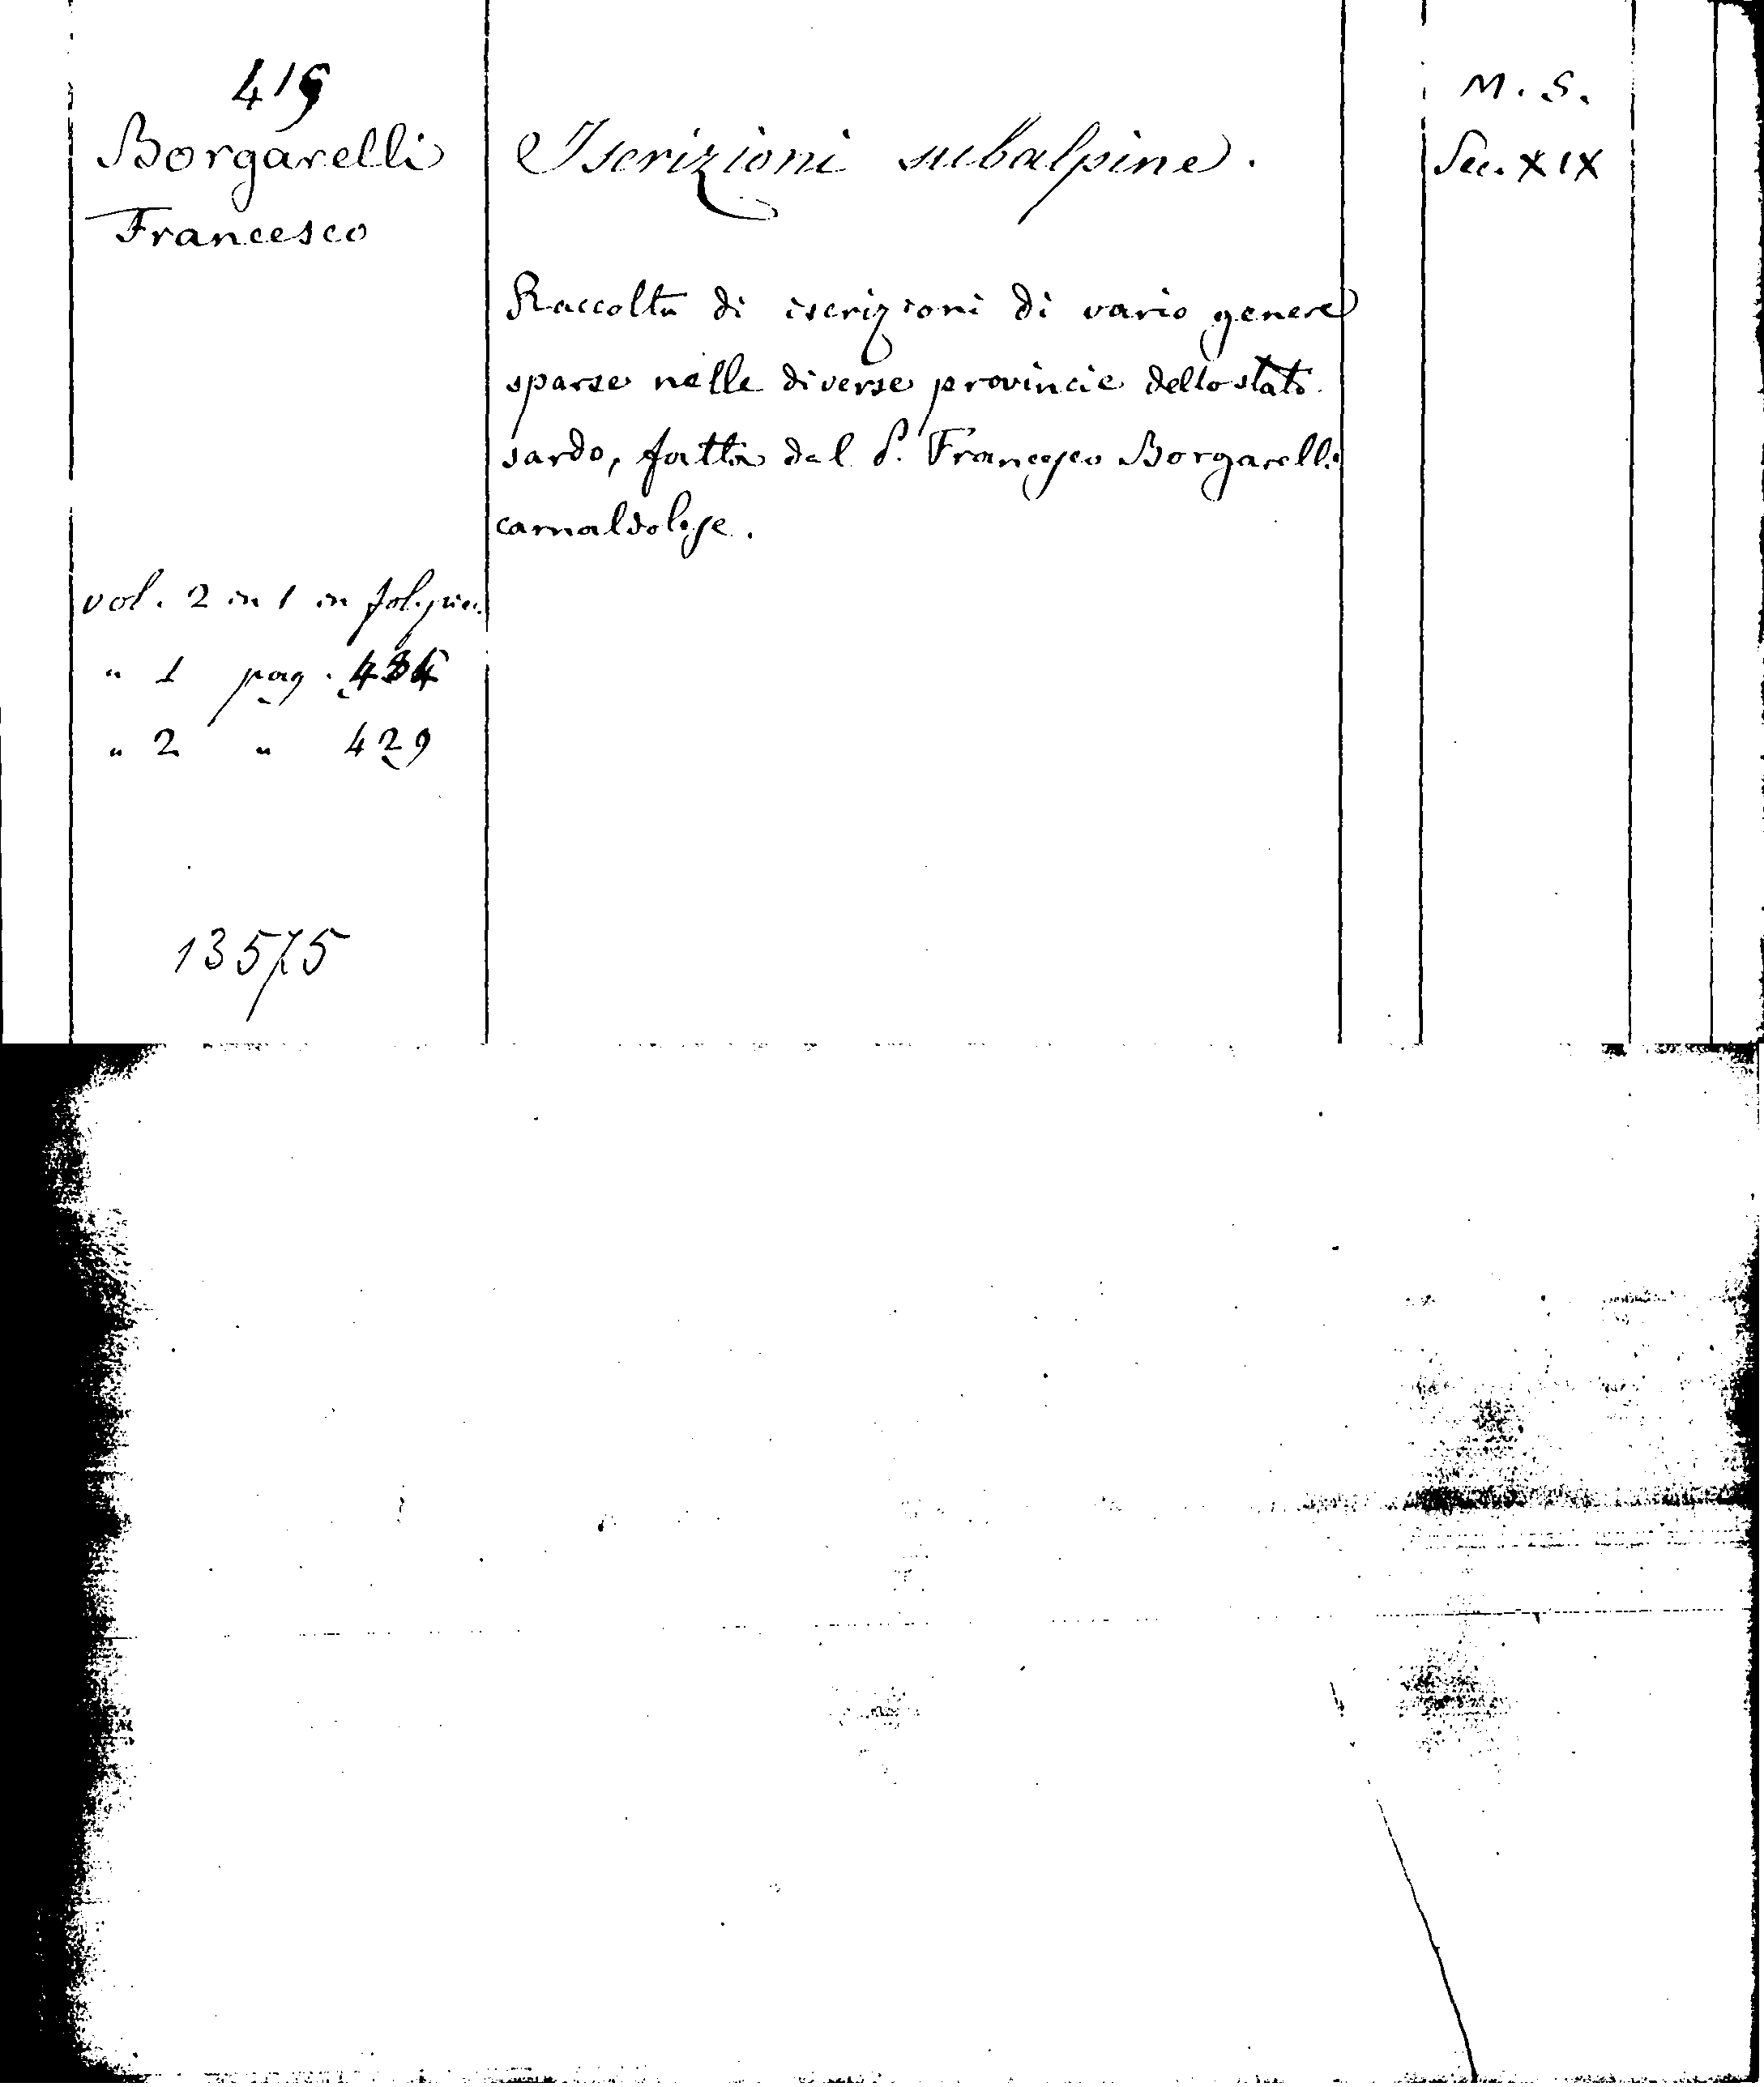 419
Borgarelli
Francesco
Iscrizioni subalpine.
M. S.
Sec. XIX
Raccolta di iscrizioni di vario genere
sparse nelle diverse provincie dello stato
sardo, fatta dal P. Francesco Borgarelli
camaldolese.
vol. 2 in 1 in fol. picc.
" 1 pag.
" 2 " 429
13575